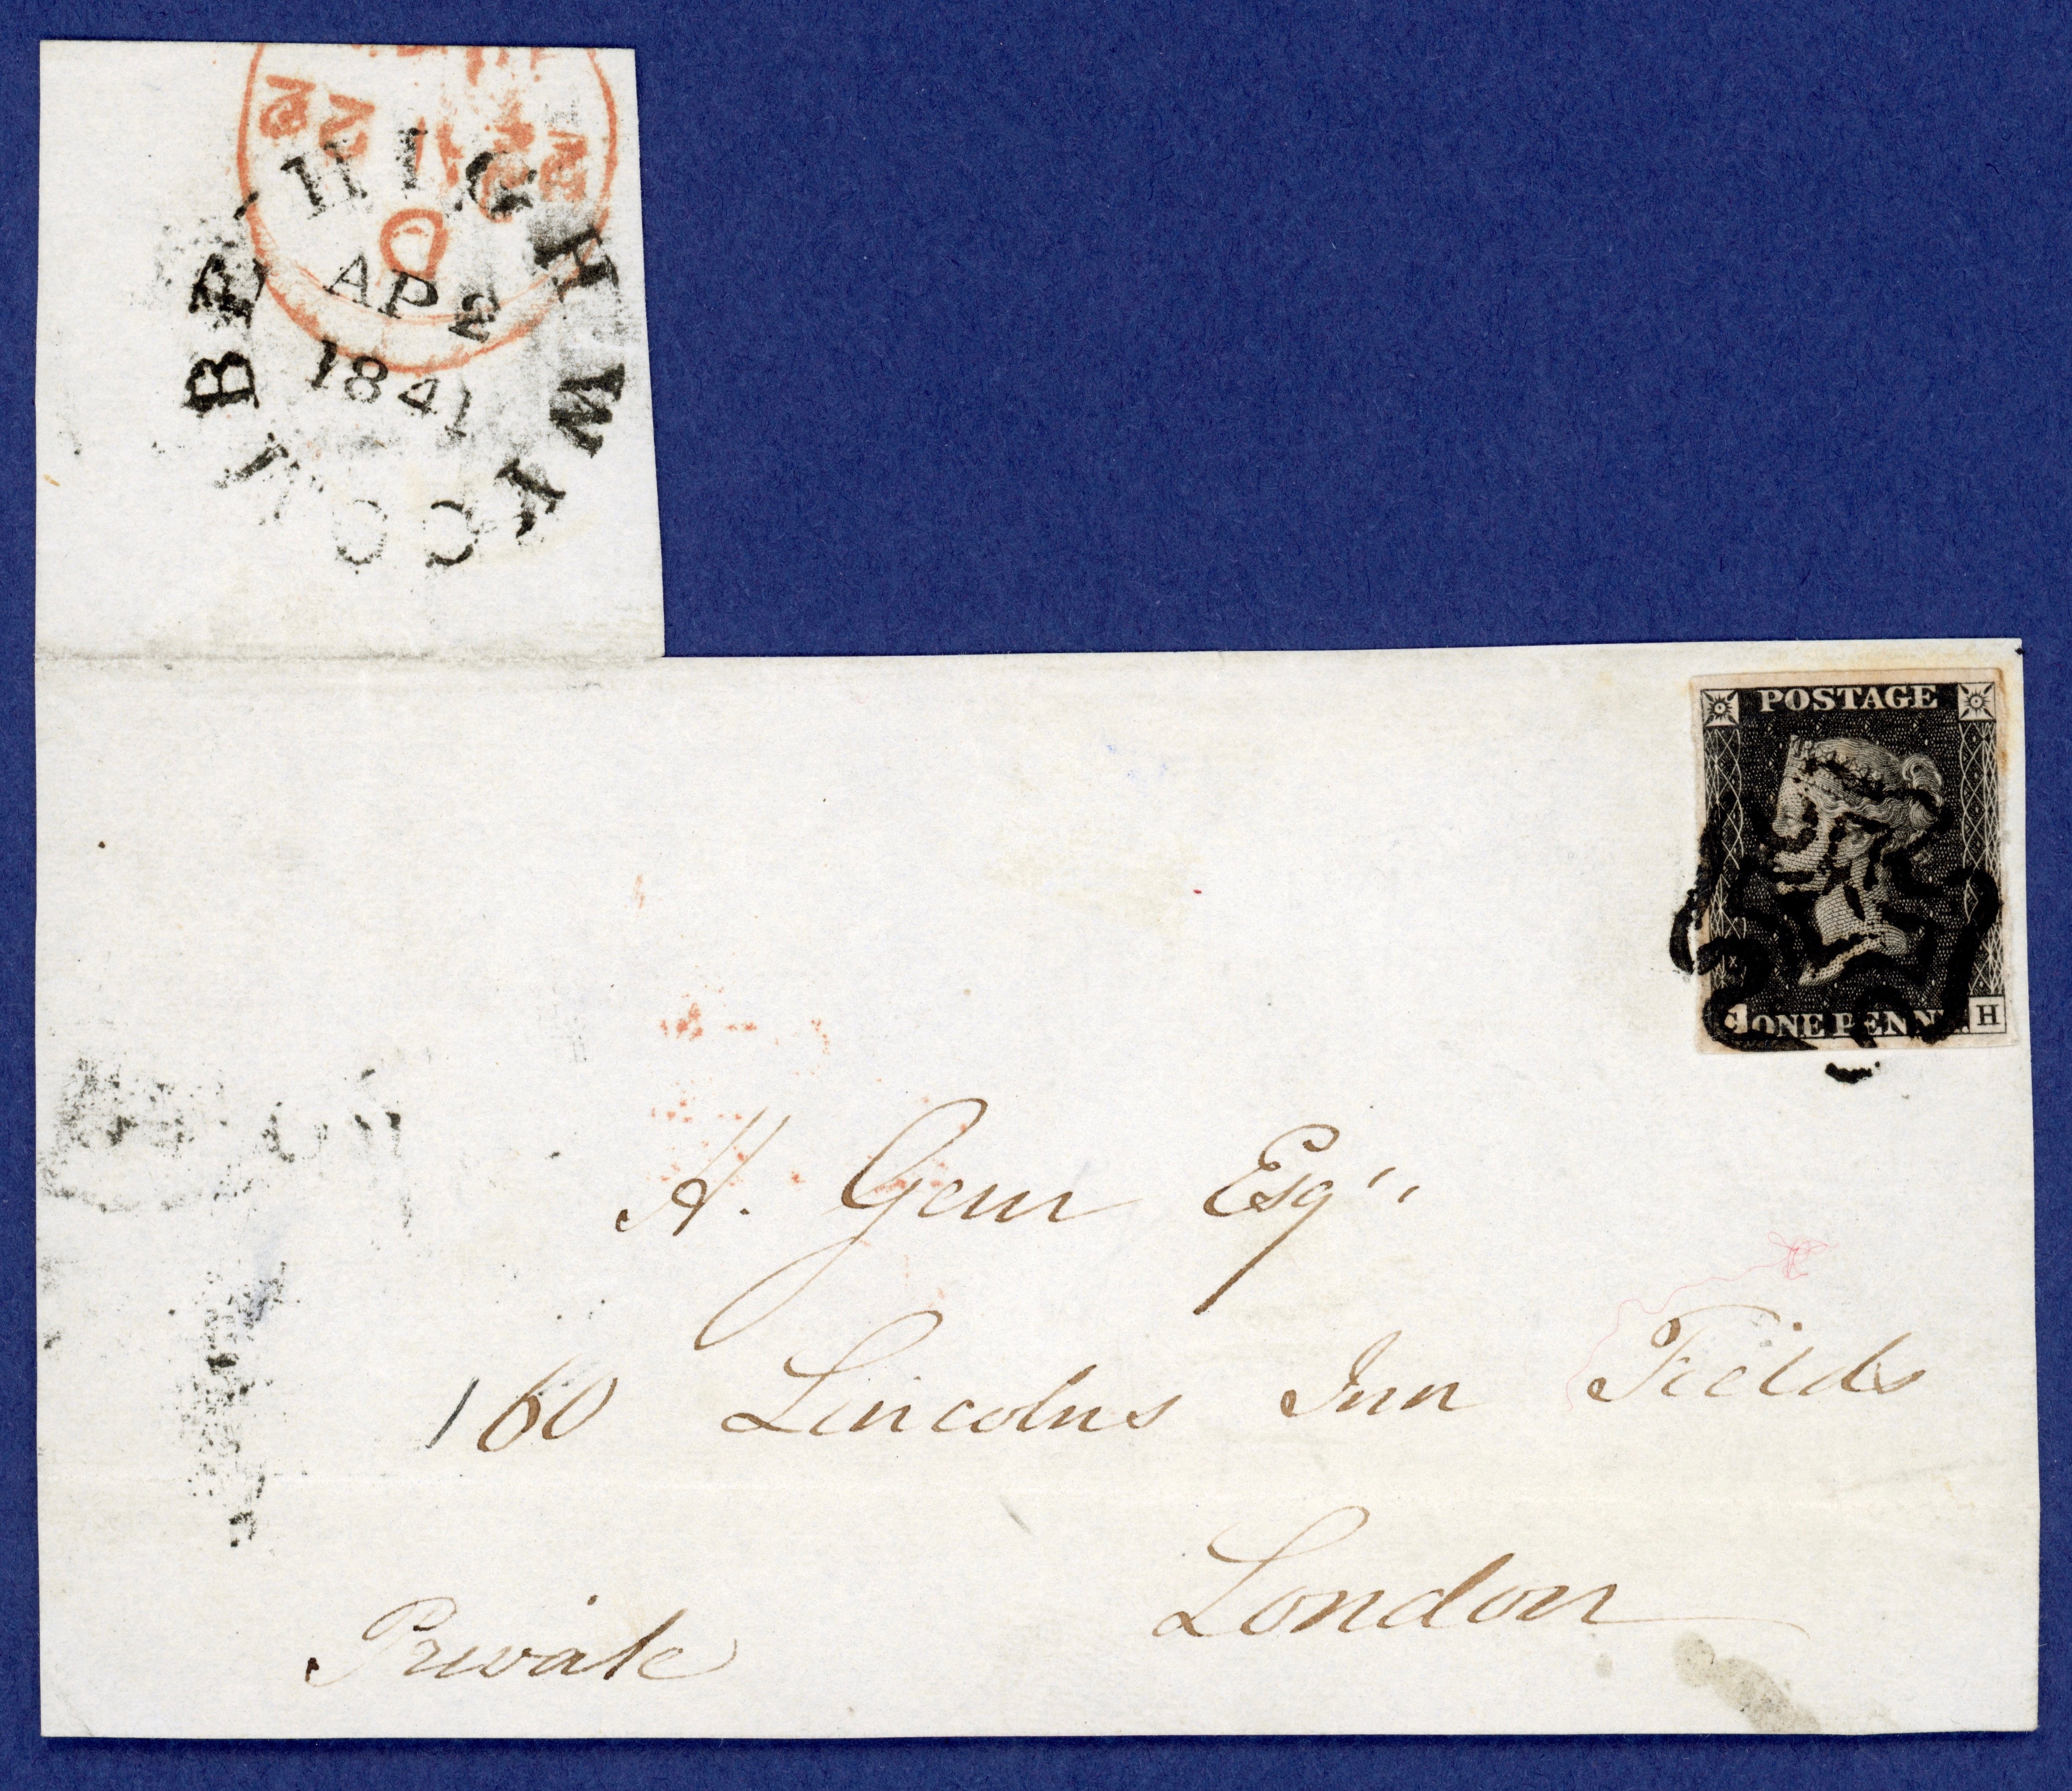 HIGH WYCOMBE
AP 2
1841
POSTAGE
ONE PENNY.
H
H. Gem Esqr
160 Lincolns Inn Fields
London
Private